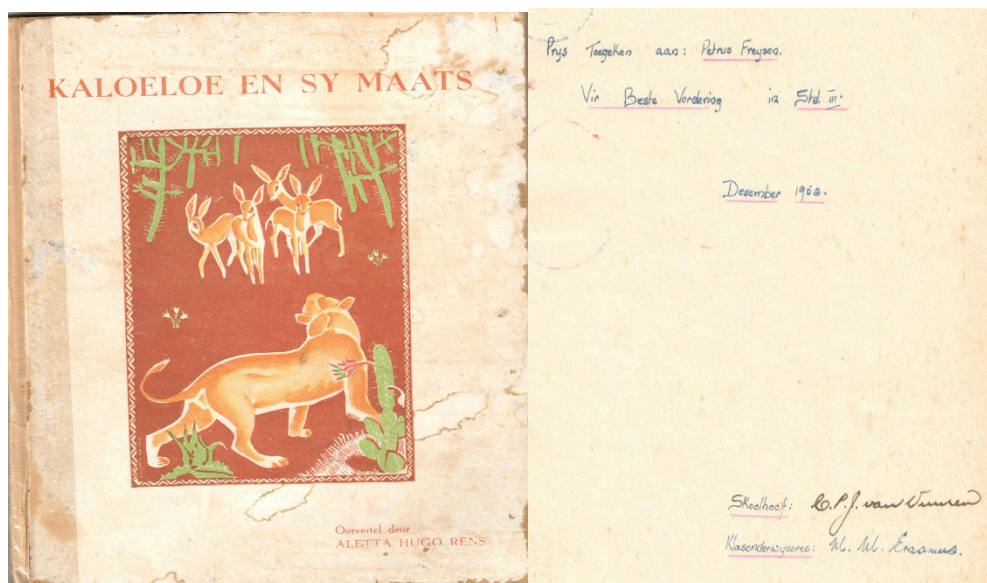 KALOELOE EN SY MAATS
Oorvertel deur
ALETTA HUGO RENS
Prys Toegeken aan: Petrus Freysen.
Vir Beste Vordering in Std. III.
Desember 1962.
Skoolhoof: C.P.J. van Vuuren
Klasonderwyseres: M. M. Erasmus.